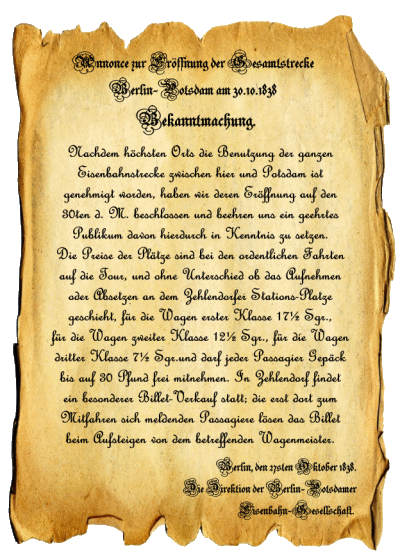 Annonce zur Eröffnung der Gesamtstrecke
Berlin-Potsdam am 30.10.1838
Bekanntmachung.
Nachdem höchsten Orts die Benutzung der ganzen
Eisenbahnstrecke zwischen hier und Potsdam ist
genehmigt worden, haben wir deren Eröffnung auf den
30ten d. M. beschlossen und beehren uns ein geehrtes
Publikum davon hierdurch in Kenntnis zu setzen.
Die Preise der Plätze sind bei den ordentlichen Fahrten
auf die Tour, und ohne Unterschied ob das Aufnehmen
oder Absetzen an dem Zehlendorfer Stations-Platze
geschieht, für die Wagen erster Klasse 17½ Sgr.,
für die Wagen zweiter Klasse 12½ Sgr., für die Wagen
dritter Klasse 7½ Sgr.und darf jeder Passagier Gepäck
bis auf 30 Pfund frei mitnehmen. In Zehlendorf findet
ein besonderer Billet-Verkauf statt; die erst dort zum
Mitfahren sich meldenden Passagiere lösen das Billet
beim Aufsteigen von dem betreffenden Wagenmeister.
Berlin, den 27sten Oktober 1838.
Die Direktion der Berlin-Potsdamer
Eisenbahn-Gesellschaft.